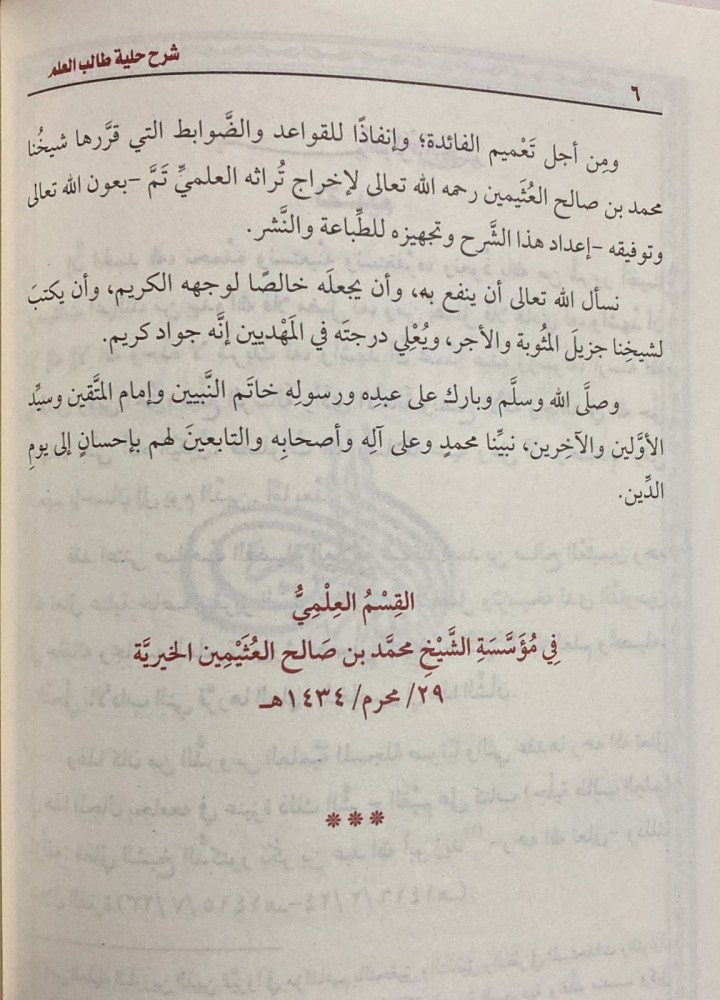 شرح حلية طالب العلم
٦
ومِن أجل تَعْميم الفائدة؛ وإنفاذًا للقواعد والضَّوابط التي قرَّرها شيخُنا
محمد بن صالح العُثَيمين رحمه الله تعالى لإخراج تُراثه العلميِّ تَمَّ -بعون الله تعالى
وتوفيقه -إعداد هذا الشَّرح وتجهيزه للطِّباعة والنَّشر.
نسأل الله تعالى أن ينفع به، وأن يجعلَه خالصًا لوجهه الكريم، وأن يكتبَ
لشيخِنا جزيلَ المثُوبة والأجر، ويُعْلِي درجتَه في المَهْديين إنَّه جواد كريم.
وصلَّى الله وسلَّم وبارك على عبدِه ورسولِه خاتَم النَّبيين وإمام المتَّقين وسيِّد
الأوَّلين والآخِرين، نبيِّنا محمدٍ وعلى آلِه وأصحابِه والتابعينَ لهم بإحسانٍ إلى يومِ
الدِّين.
القِسْمُ العِلْمِيُّ
فِي مُؤَسَّسَةِ الشَّيْخِ محمَّد بن صَالح العُثَيْمِين الخيريَّة
٢٩/ محرم/ ١٤٣٤هـ